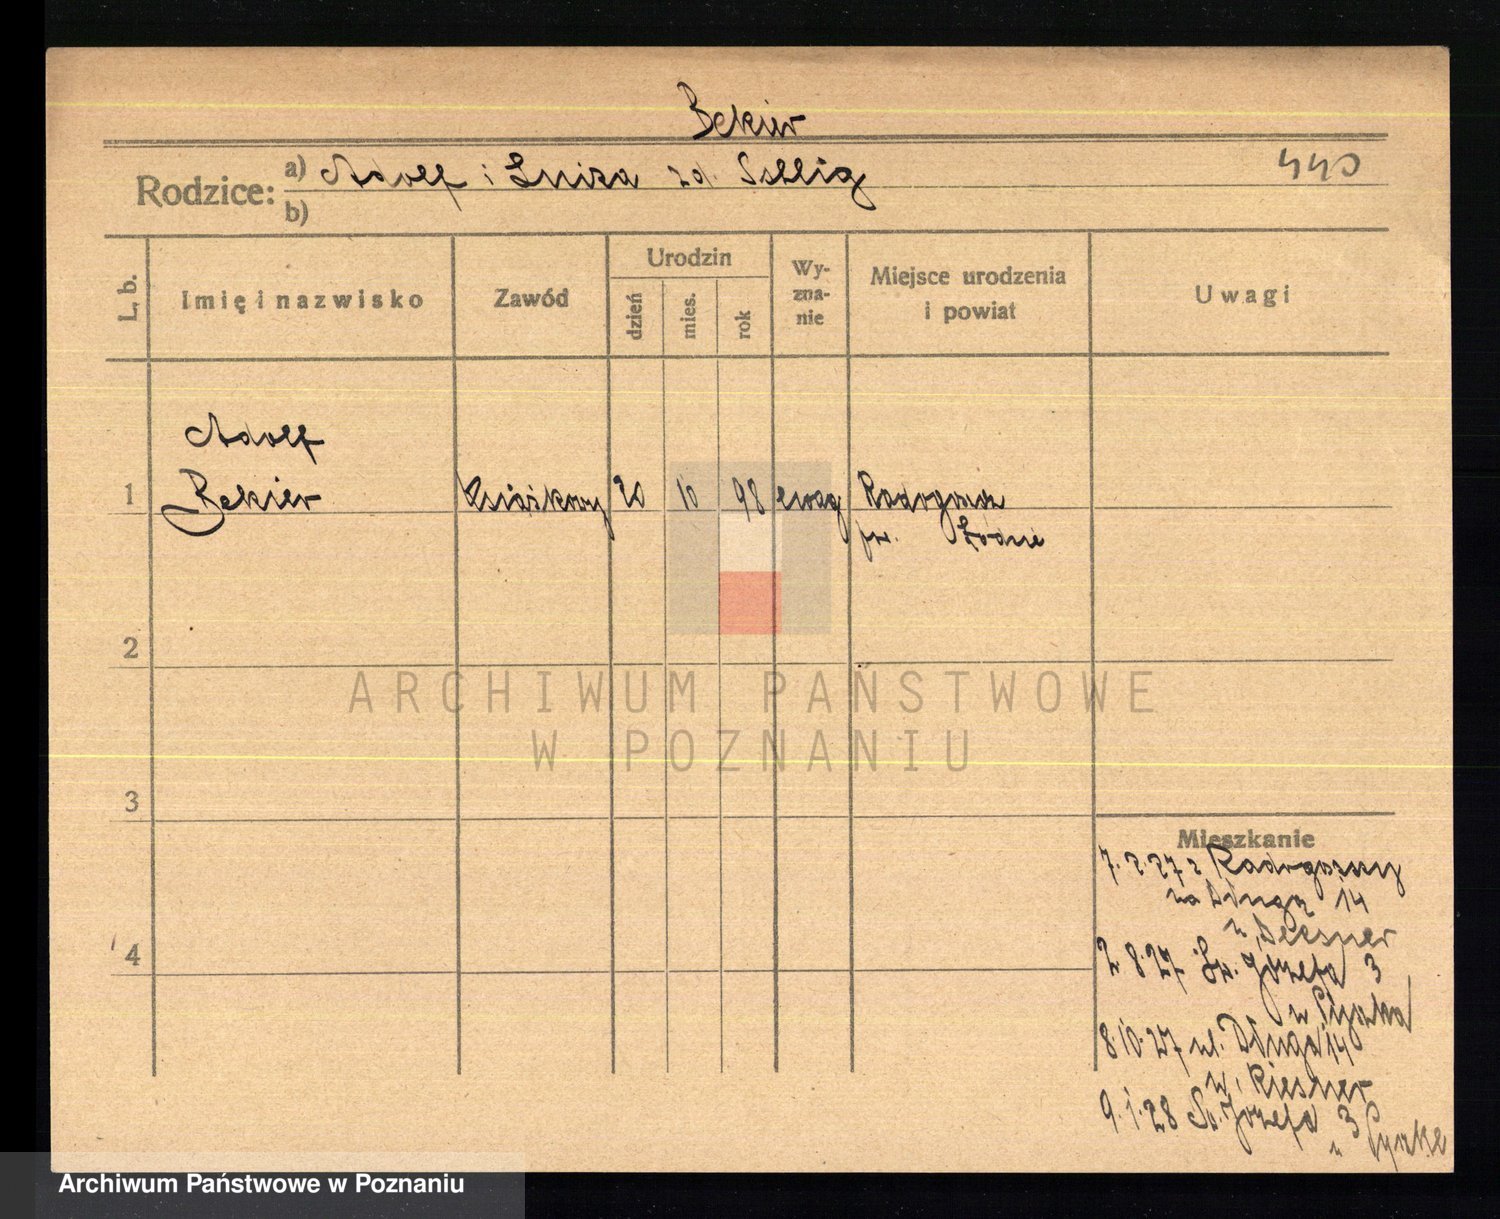 Bekier
Rodzice: a) Adolf i Luiza zd. Sellig
b)
440
L. b.
Imię i nazwisko
Zawód
Urodzin
dzień
mies.
rok
Wy-
zna-
nie
Miejsce urodzenia
i powiat
Uwagi
Adolf
1 Bekier Książkowy 20 10 98 ewag Radogoszcz
pw. Łodzie
2
ARCHIWUM PAŃSTWOWE
W POZNANIU
3
Mieszkanie
7. 2. 27 z Radogoszczy
na Długą 14
u
4
2 8. 27 Św. Józefa 3
u Pyszka
8. 10. 27 ul. Długa 14
u. Riesner
9. 1. 28 Św. Józefa 3
u
Archiwum Państwowe w Poznaniu